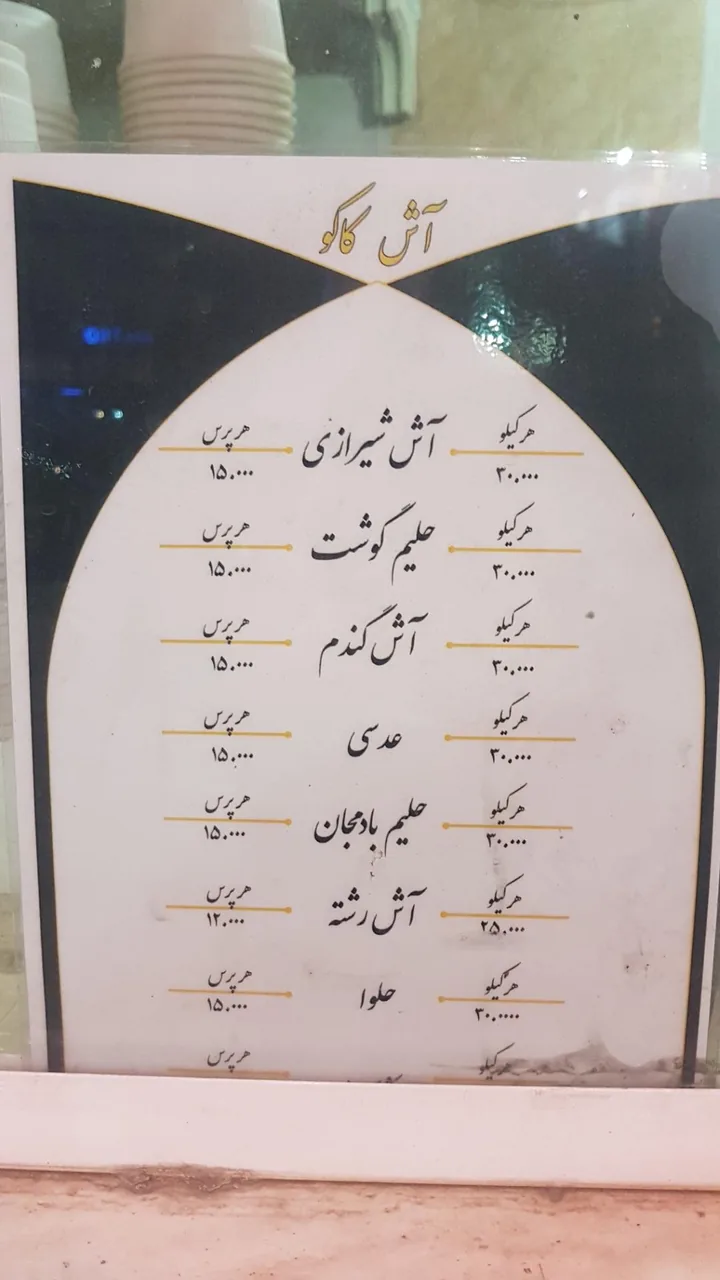 آش کاکو
هر کیلو آش شیرازی هر پرس
۳۰.۰۰۰ ۱۵.۰۰۰
هر کیلو حلیم گوشت هر پرس
۳۰.۰۰۰ ۱۵.۰۰۰
هر کیلو آش گندم هر پرس
۳۰.۰۰۰ ۱۵.۰۰۰
هر کیلو عدسی هر پرس
۳۰.۰۰۰ ۱۵.۰۰۰
هر کیلو حلیم بادمجان هر پرس
۳۰.۰۰۰ ۱۵.۰۰۰
هر کیلو آش رشته هر پرس
۲۵.۰۰۰ ۱۲.۰۰۰
هر کیلو حلوا هر پرس
۳۰.۰۰۰۰ ۱۵.۰۰۰
هر کیلو هر پرس